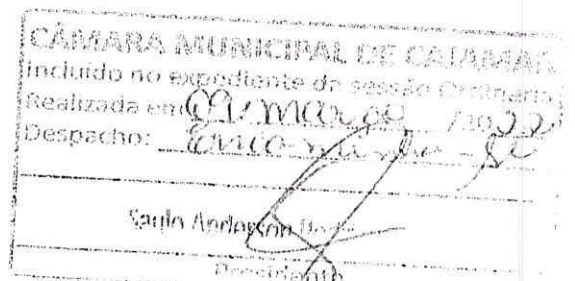 CÂMARA MUNICIPAL DE CAJAMAR
Incluído no expediente da sessão Ordinária
Realizada em março /2022
Despacho: Encaminhe-se
Saulo Anderson
Presidente